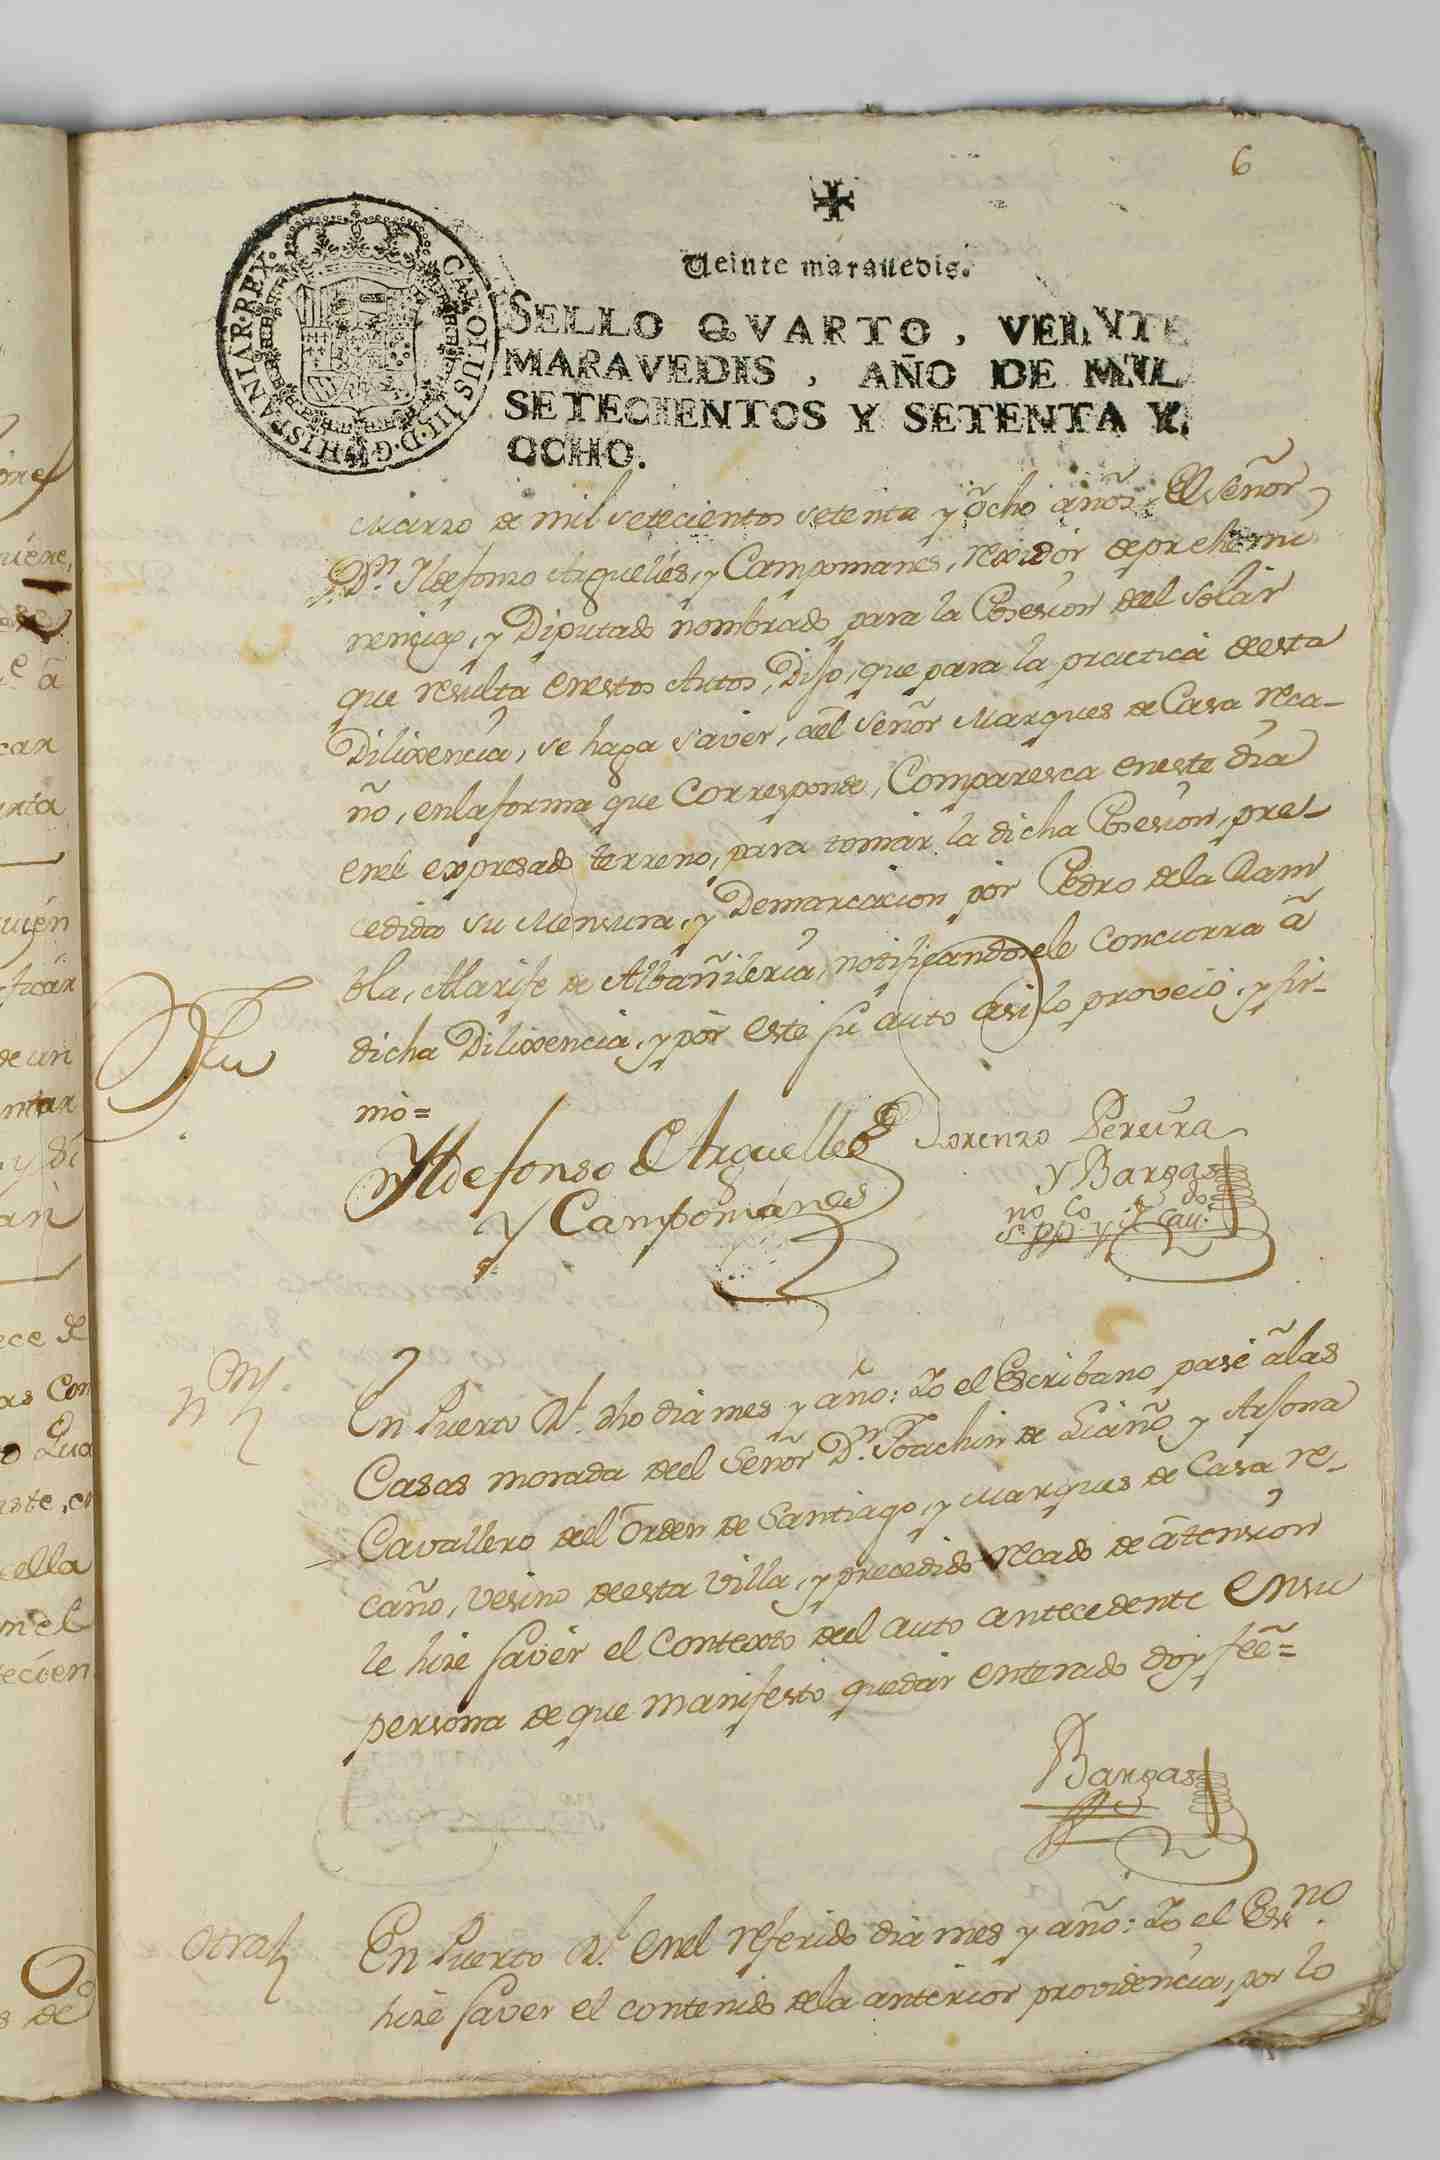 6
Veinte maravedis.
CAROLUS III. D. G. HISPANIAR. REX.
SELLO QVARTO, VEINTE
MARAVEDIS, AÑO DE MIL
SETECIENTOS Y SETENTA Y
OCHO.
Marzo de mil setecientos setenta y ocho años. El Señor
Dn. Ildefonso Arguelles, y Campomanes, rexidor deprehemi
nencia, y Diputado nombrado para la Posesion del Solar
que resulta enestos Autos, Dijo, que para la practica deesta
Dilixencia, se haga saver, aël Señor Marques de Casa reca-
ño, enlaforma que Corresponde, Comparesca eneste dia
enel expresado terreno, para tomar la dicha Posesion, pre-
cedida su Mensura, y Demarcacion por Pedro dela Ram
bla, Alarife de Albañileria, notificandosele Concurra â
dicha Dilixencia, y por este su auto asi lo proveió, y fir-
Au
mò=
Yldefonso de Arguelles
y Campomanes
Lorenzo Pereira
y Bargas
En Puerto Rl. dho dia mes y año: Yo el Escribano pasé âlas
Casas morada deel Señor Dn. Joachin de Liaño y Arjona
Cavallero deel Orden de Santiago, y Marques de Casa re-
caño, Vesino deesta Villa, y precedido recado de âtension
le hize saver el Contexto deel auto antecedente Ensu
persona de que manifesto quedar enterado doy feê=
Bargas
Otra
En Puerto Rl. enel referido dia mes y año: Yo el Esno.
hize saver el contenido dela anterior providencia, por lo